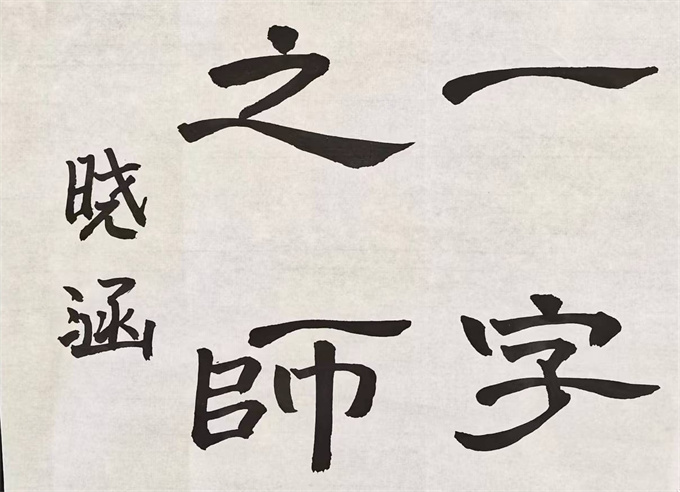 一字
之師
晓涵